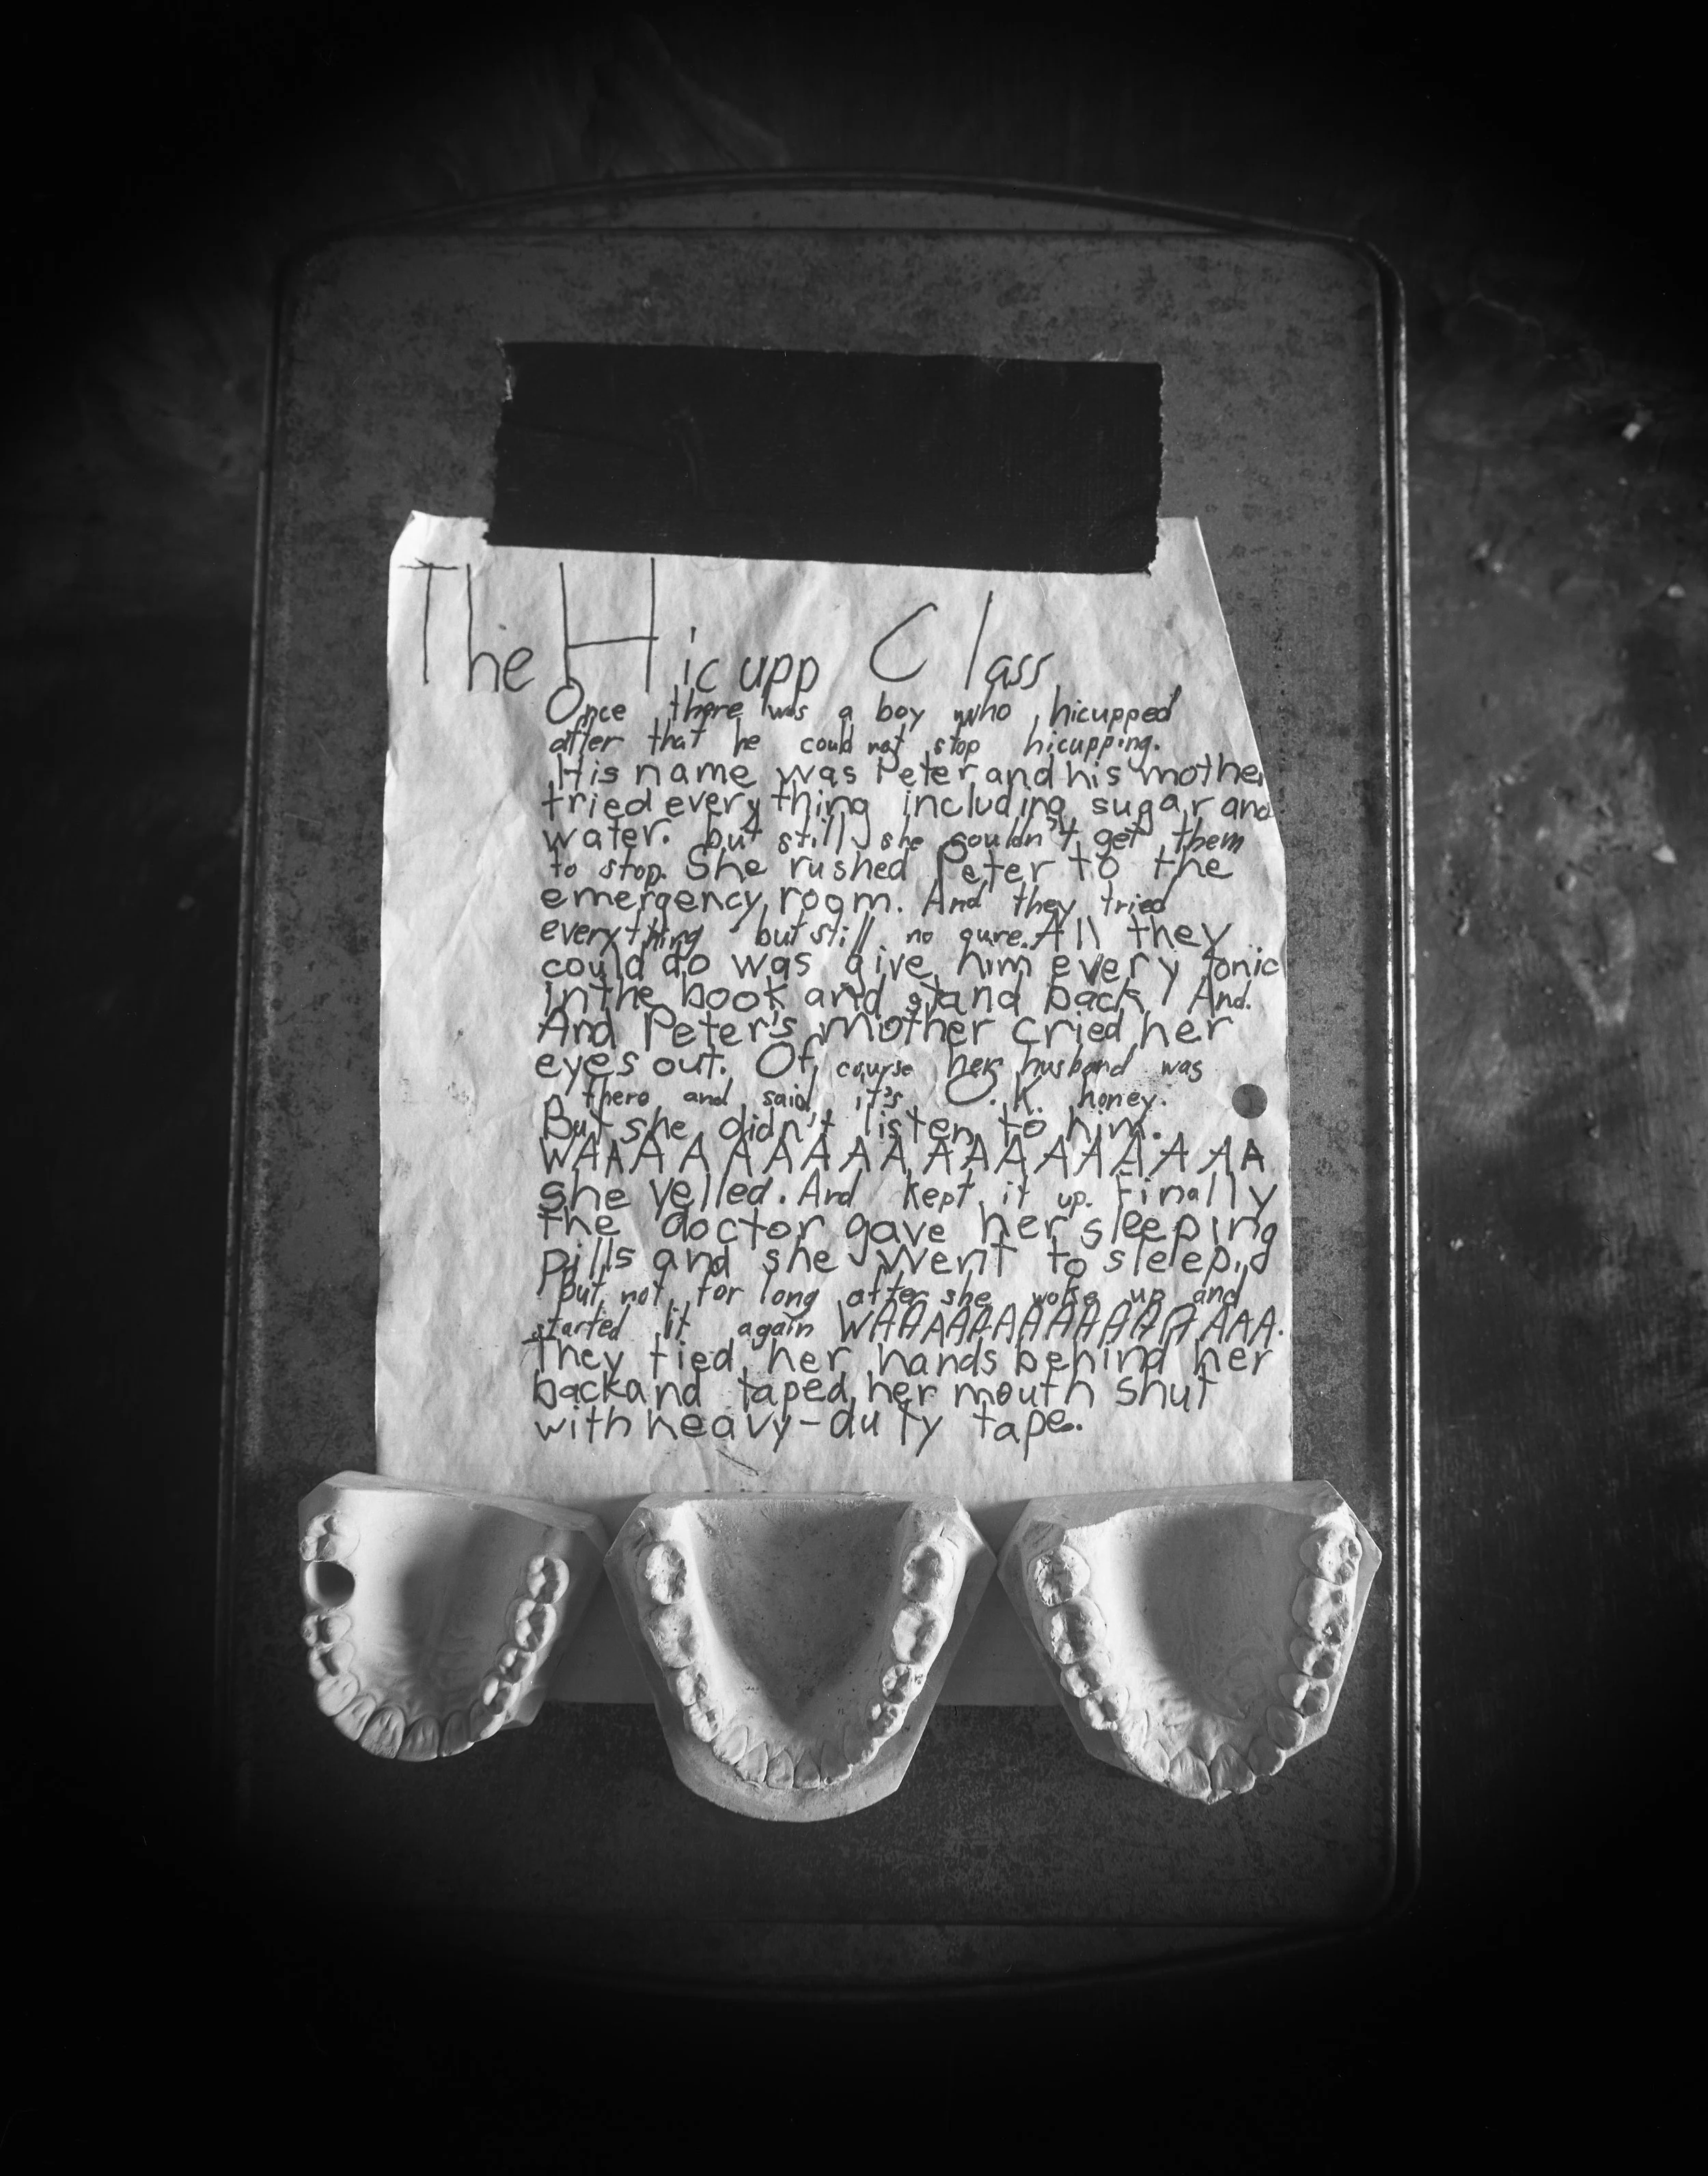 The Hicupp Class
Once there was a boy who hicupped
after that he could not stop hicupping.
His name was Peter and his mother
tried everything including sugar and
water. but still she couldn't get them
to stop. She rushed Peter to the
emergency room. And they tried
everything but still no qure. All they
could do was give him every tonic
in the book and stand back! And.
And Peter's mother cried her
eyes out. Of course her husband was
there and said it's O.K. honey.
But she didn't listen to him.
WAAAAAAAAAAAAAAAAAAA
she yelled. And kept it up. Finally
the doctor gave her sleeping
pills and she went to sleep.
but not for long after she woke up and
started it again WAAAAAAAAAAAAAAA.
They tied her hands behind her
back and taped her mouth shut
with heavy-duty tape.